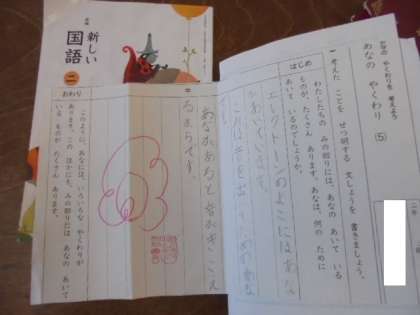 新しい
国語
二
かなの やくわりを 考えよう
あなの やくわり ⑤
一 考えた ことを せつ明する 文しょうを 書きましょう。
はじめ
わたしたちの みの回りには、あなの あいている
ものが、たくさん あります。あなは、何の ために
あいて いるのでしょうか。
エレクトーンのよこにはあなが
あいています。
あながあると音がきこえ
るからです。
おわり
このように、あなには、いろいろな やくわりが
あります。この ほかにも、みの回りには、あなの あいて
いる ものが、たくさん あります。